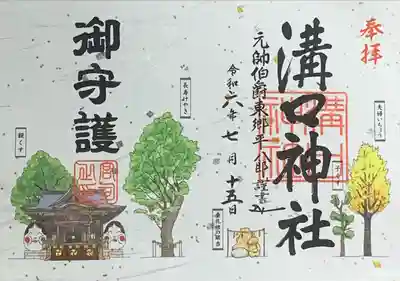 奉拝
夫婦いちょう
溝口神社
元帥伯爵東郷平八郎謹書
令和六年七月十五日
長寿けやき
御守護
親くす